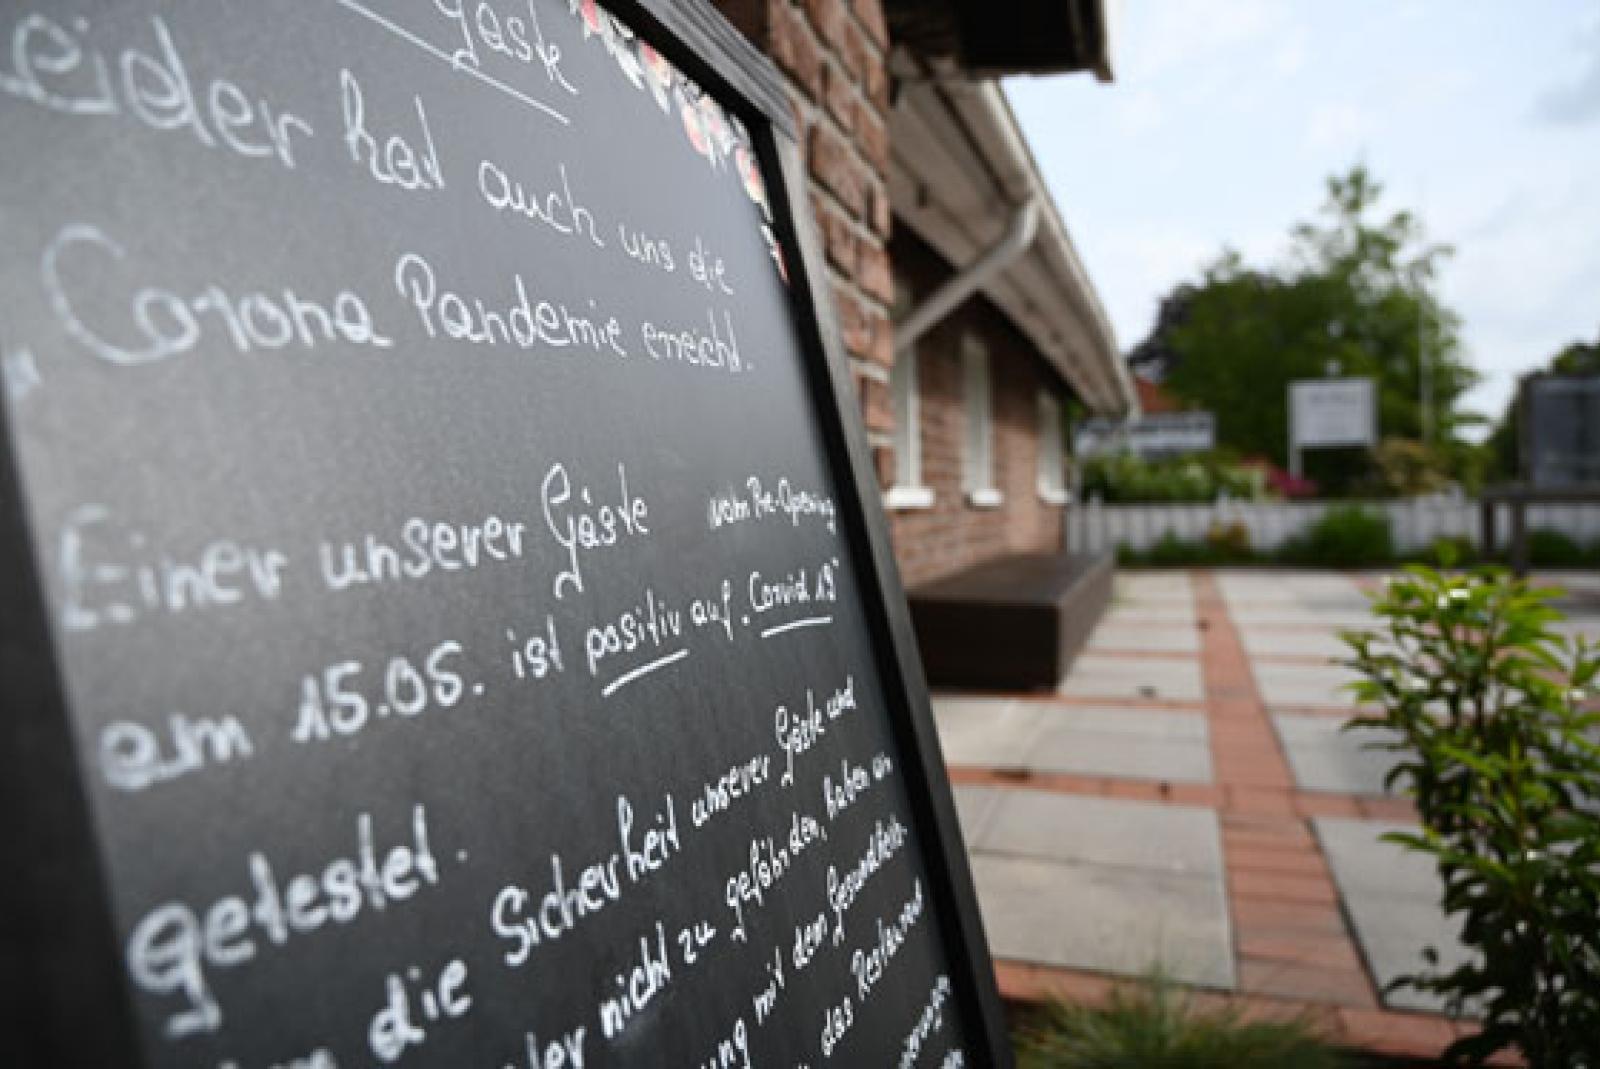 Gäste
eider hat auch uns die
Corona Pandemie erreicht.
Einer unserer Gäste vom Pre-Opening
am 15.05. ist positiv auf „Covid 19"
getestet.
die Sicherheit unserer Gäste und
nicht zu gefährden, haben
ung mit dem Gesundheits-
das Restaurant